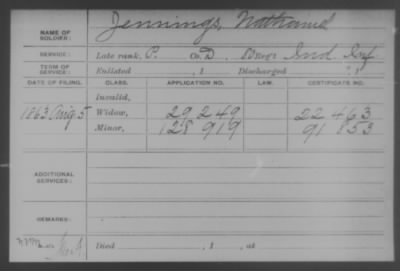 NAME OF SOLDIER: Jennings, Nathaniel
SERVICE: Late rank, P. Co. D, Reg't Ind Inf
TERM OF SERVICE: Enlisted , 1 Discharged , 1
DATE OF FILING. CLASS. APPLICATION NO. LAW. CERTIFICATE NO.
Invalid,
1863 Aug 5 Widow, 29 249 22 463
Minor, 128 919 91 853
ADDITIONAL SERVICES:
REMARKS:
Died , 1 , at